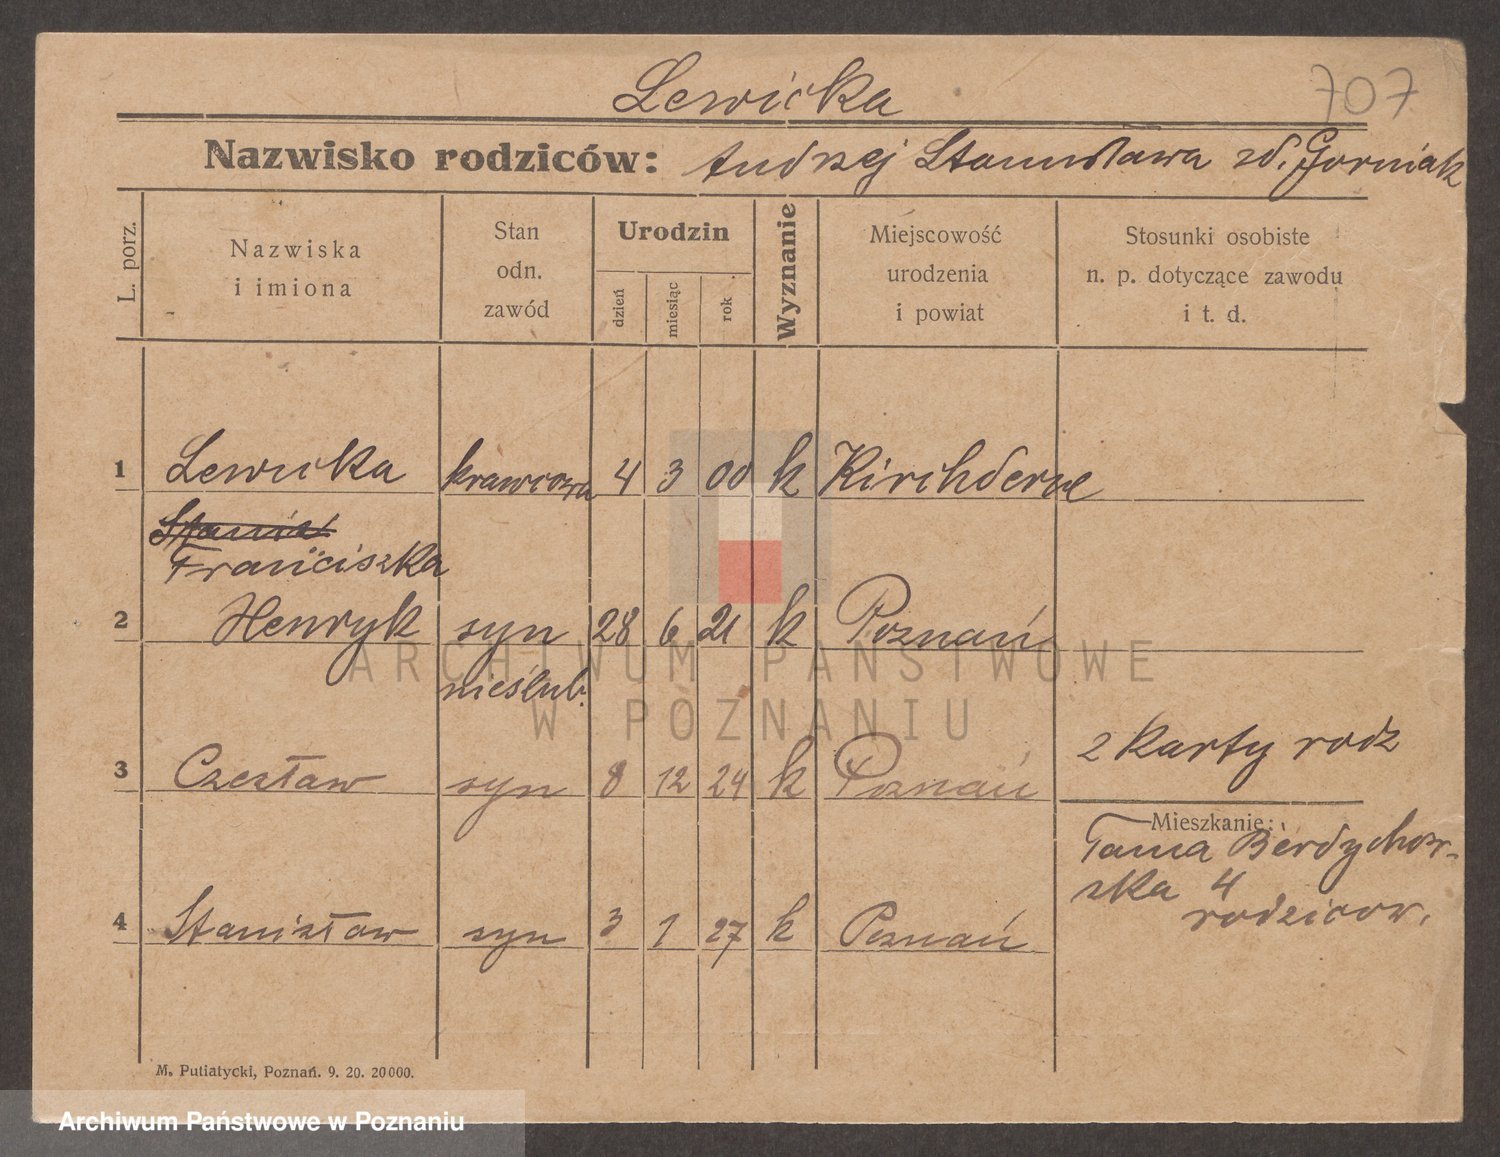 Lewicka
707
Nazwisko rodziców: Andrzej Stanisława zd. Gorniak
L. porz.
Nazwiska
i imiona
Stan
odn.
zawód
Urodzin
dzień
miesiąc
rok
Wyznanie
Miejscowość
urodzenia
i powiat
Stosunki osobiste
n. p. dotyczące zawodu
i t. d.
1 Lewicka krawcowa 4 3 00 k Kirchderne
Stanisł
Franciszka
2 Henryk syn 28 6 21 k Poznań
nieślub.
3 Czesław syn 8 12 24 k Poznań
2 karty rodz
Mieszkanie:
Tama Berdychow-
ska 4
rodzicow.
4 Stanisław syn 3 1 27 k Poznań
M. Putiatycki, Poznań. 9. 20. 20000.
ARCHIWUM PAŃSTWOWE
W POZNANIU
Archiwum Państwowe w Poznaniu